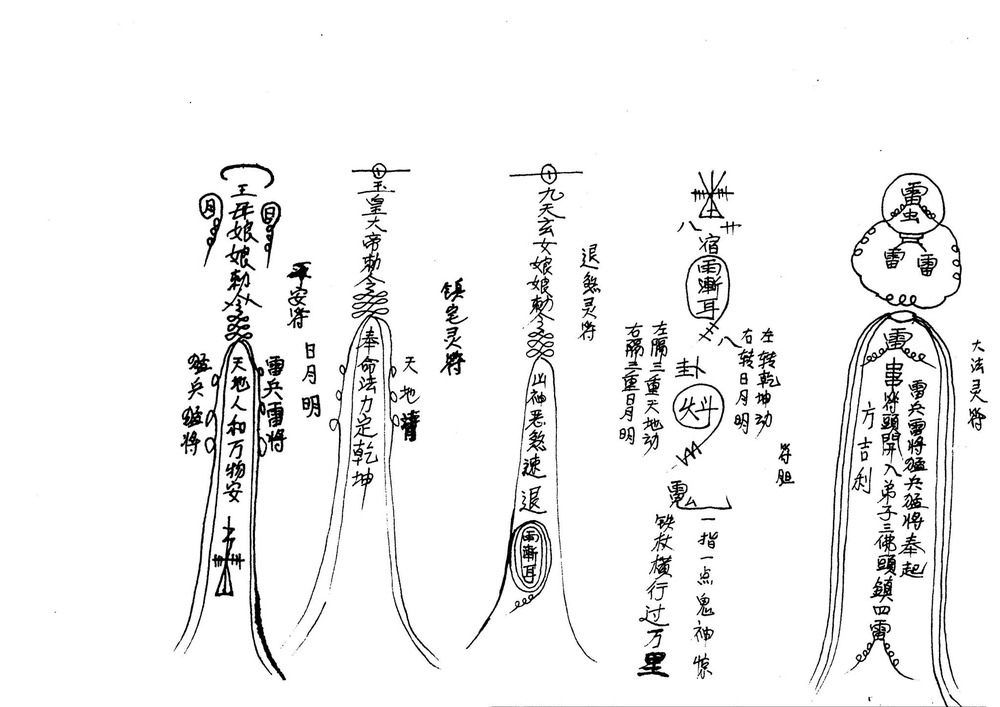 大法灵符
雷
虫
雷 雷
雷
雷兵雷将猛兵猛将奉起
弟子三佛頭鎮四
方吉利
雷
符胆
宿
雨漸耳
八
卦
左转乾坤动
右转日月明
左隔三重天地动
右隔三重日月明
一指一点鬼神惊
铁杖横行过万里
退煞灵符
九天玄女娘娘勅令
凶神恶煞速退
雨漸耳
镇宅灵符
玉皇大帝勅令
奉命法力定乾坤
天地清
日月明
平安符
王母娘娘勅令
日
月
天地人和万物安
雷兵雷将
猛兵猛将